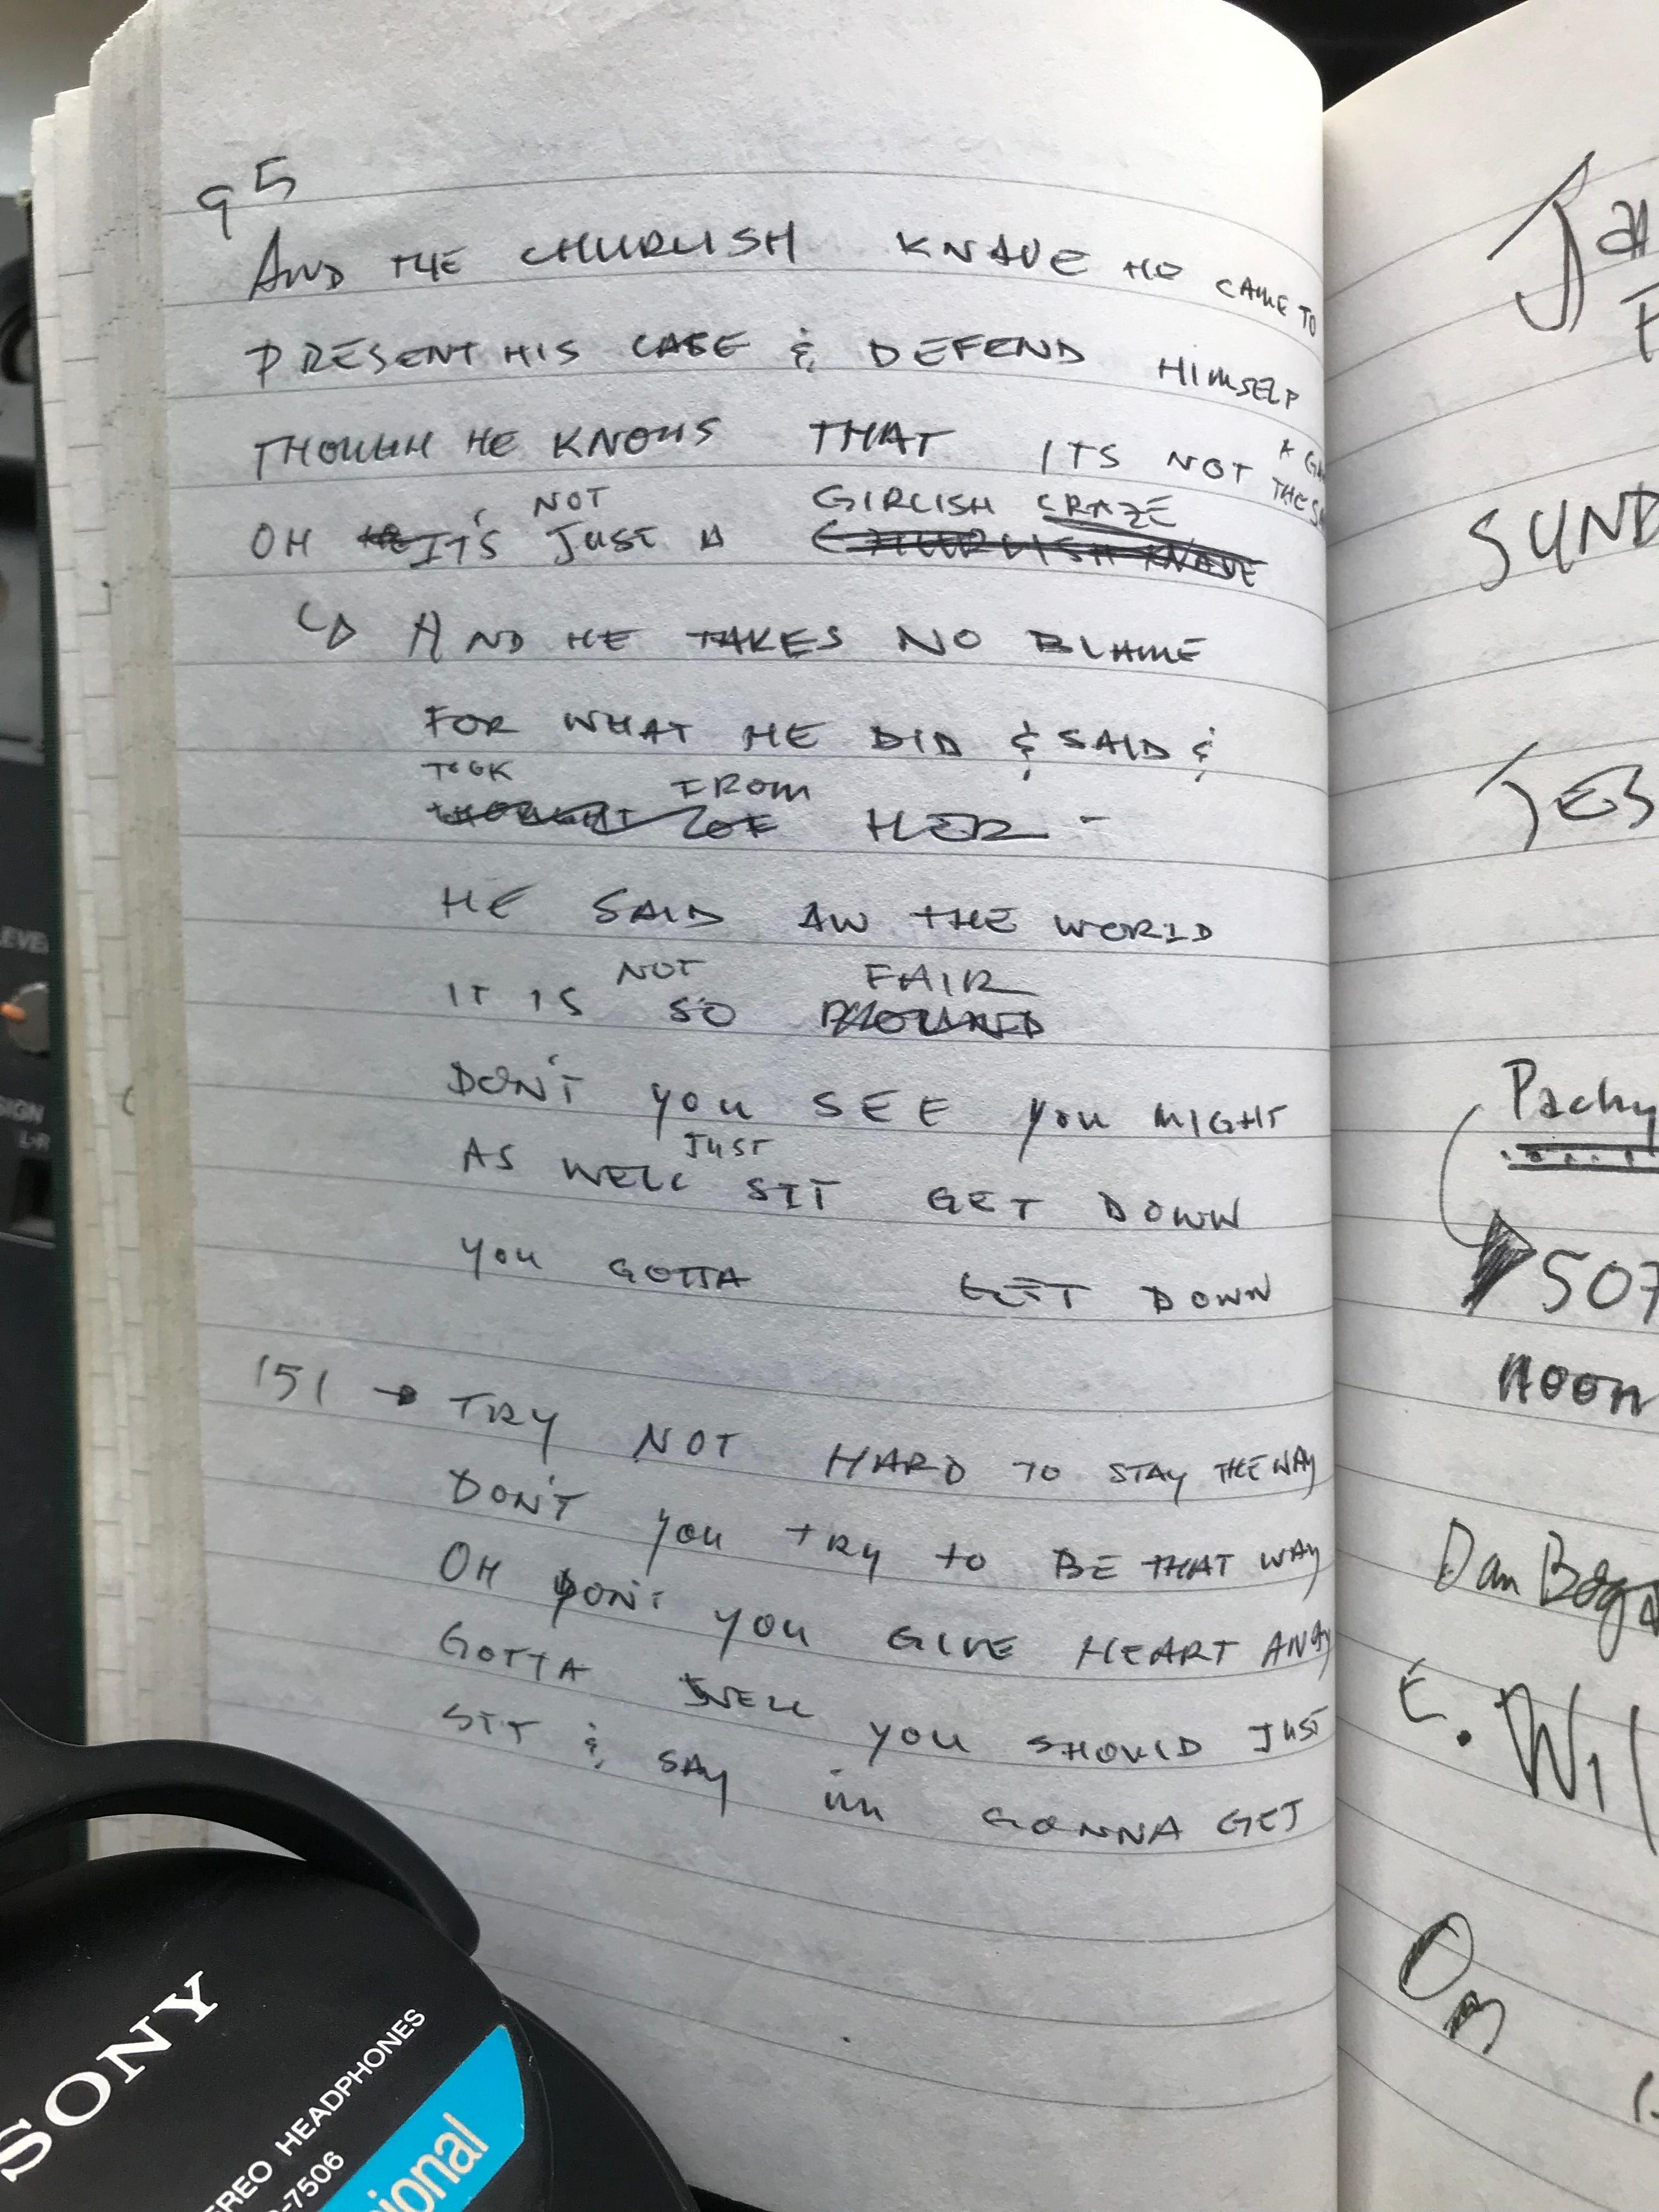 95
AND THE CHURLISH KNAVE HE CAME TO
PRESENT HIS CASE & DEFEND HIMSELF
THOUGH HE KNOWS THAT ITS NOT A
THE
NOT GIRLISH CRAZE
OH IT'S JUST A CHURLISH KNAVE
AND HE TAKES NO BLAME
FOR WHAT HE DID & SAID &
TOOK FROM
THOUGHT OF HER -
HE SAID AW THE WORLD
NOT FAIR
IT IS SO
DON'T YOU SEE YOU MIGHT
JUST
AS WELL SIT GET DOWN
YOU GOTTA GET DOWN
151 → TRY NOT HARD TO STAY THE WAY
DON'T YOU TRY TO BE THAT WAY
OH DON'T YOU GIVE HEART AWAY
GOTTA WELL YOU SHOULD JUST
SIT & SAY im GONNA GET
SUND
Pachy
507
NOON
Dan
E. Wil
LEVEL
L-R
SONY
STEREO HEADPHONES
-7506